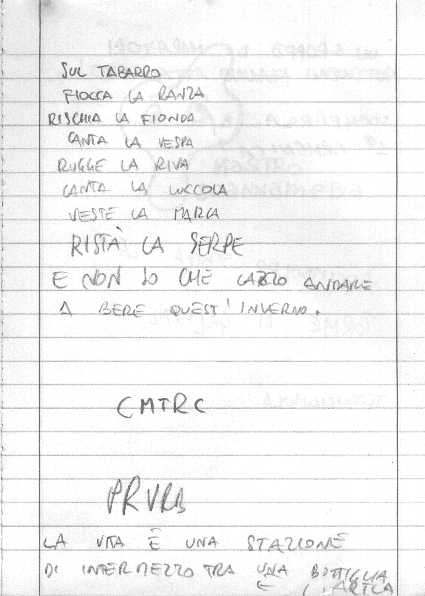 SUL TABARRO
FIOCCA LA RANZA
RISCHIA LA FIONDA
CANTA LA VESPA
RUGGE LA RIVA
CANTA LA LUCCIOLA
VESTE LA MARCA
RISTÀ LA SERPE
E NON SO CHE CAZZO ANDARE
A BERE QUEST'INVERNO.
CMTRC
PRVRB
LA VITA È UNA STAZIONE
DI INTERMEZZO TRA UNA BOTTIGLIA
E L'ALTRA